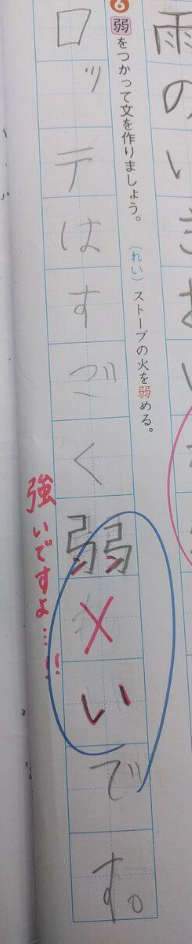 雨の
6 弱をつかって文を作りましょう。 (れい) ストーブの火を弱める。
ロッテはすごく弱いです。
強いですよ…!!